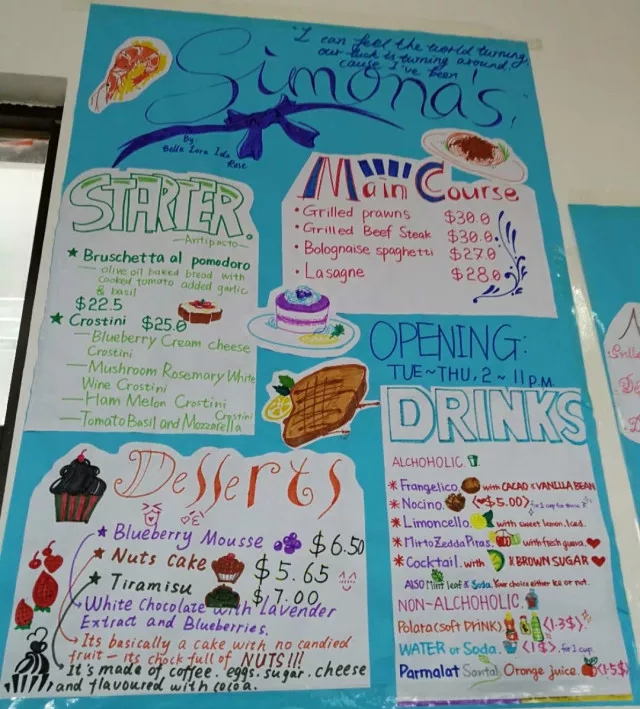 "I can feel the world turning
our luck is turning around
cause I've been
Simona's
By:
Bella Lara Ida
Rose
STARTER
—Antipasto—
★ Bruschetta al pomodoro
— olive oil baked bread with
cooked tomato added garlic
& basil
$22.5
★ Crostini $25.0
—Blueberry Cream cheese
Crostini
—Mushroom Rosemary White
Wine Crostini
—Ham Melon Crostini
—Tomato Basil and Mozzarella Crostini
Main Course
• Grilled prawns $30.0
• Grilled Beef Steak $30.0
• Bolognaise spaghetti $27.0
• Lasagne $28.0
OPENING:
TUE~THU, 2~11 P.M.
Desserts
★ Blueberry Mousse $6.50
★ Nuts Cake $5.65
★ Tiramisu $7.00
White Chocolate with Lavender
Extract and Blueberries.
Its basically a cake with no candied
fruit — its chock full of NUTS!!!
It's made of coffee. eggs. sugar. cheese
and flavoured with cocoa.
DRINKS
ALCHOHOLIC.
* Frangelico with CACAO & VANILLA BEAN
* Nocino. <$5.00>
* Limoncello with sweet lemon. Iced.
* Mirto Zedda Piras. with fresh guava.
* Cocktail. with & BROWN SUGAR
ALSO Mint leaf & Soda. Your choice either Ice or not.
NON-ALCHOHOLIC.
Polata (soft DrINK) <1.3$>
WATER or Soda. <1$>. for 1 cup
Parmalat Santal Orange juice. <1.5$>